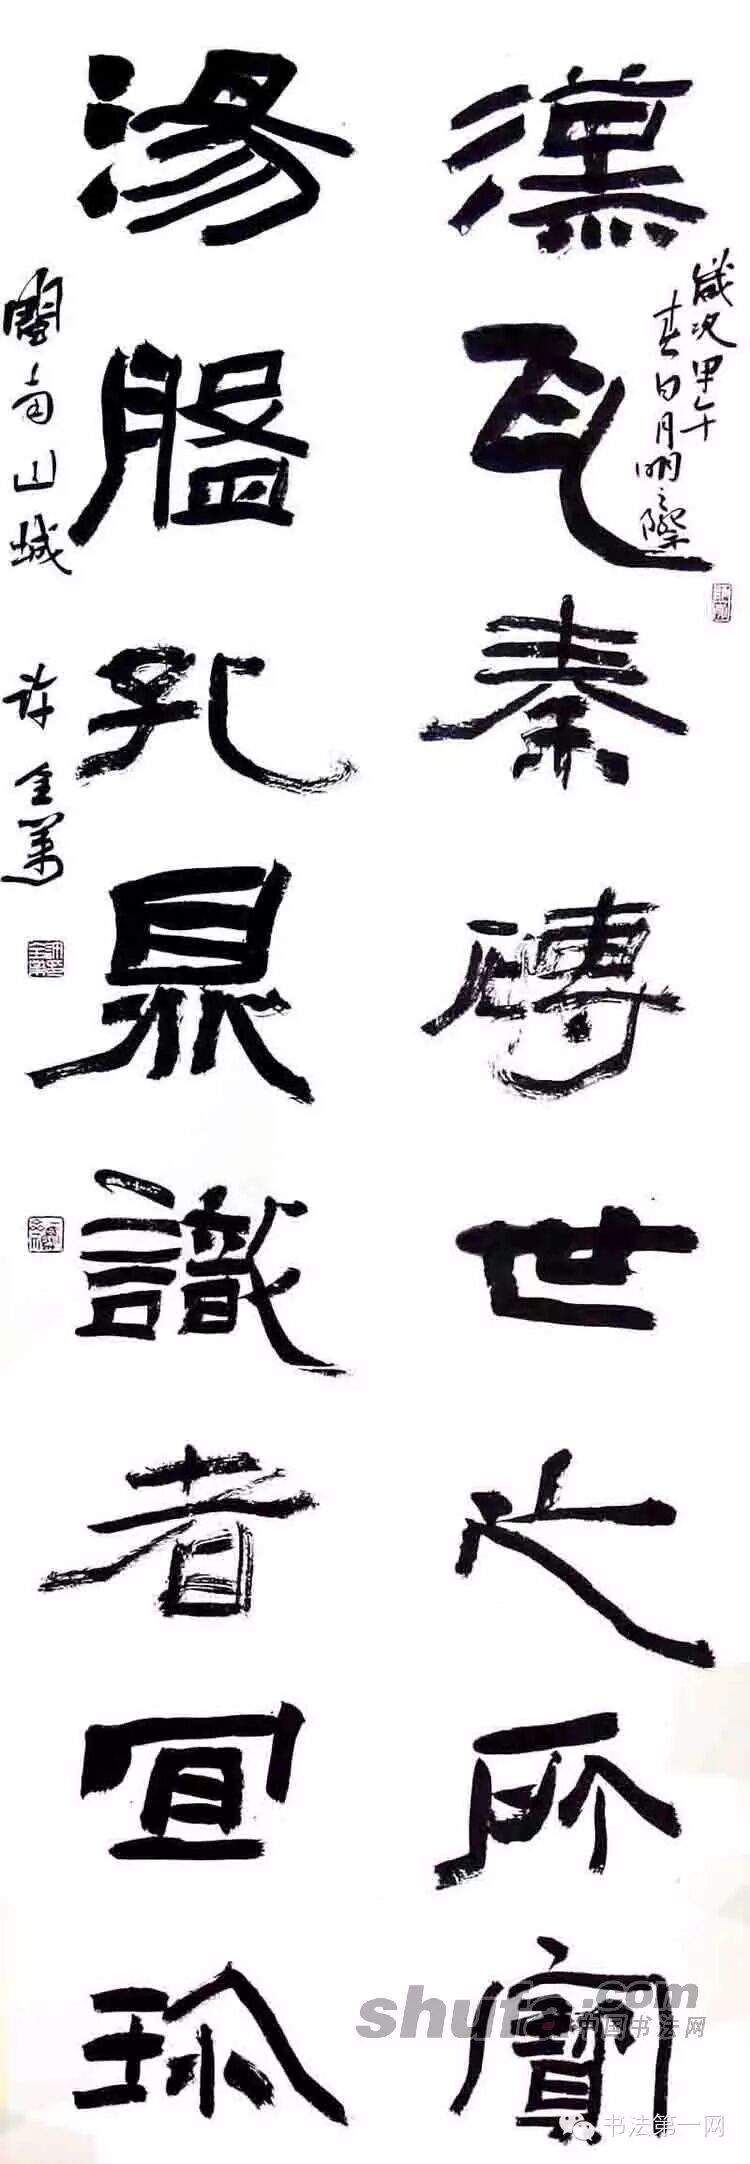 漢瓦秦磚世之所寶
歲次甲午
春日月明之際
湯盤孔鼎識者宜珍
閩南山城
許全萬
shufa.com
中国书法网
书法第一网